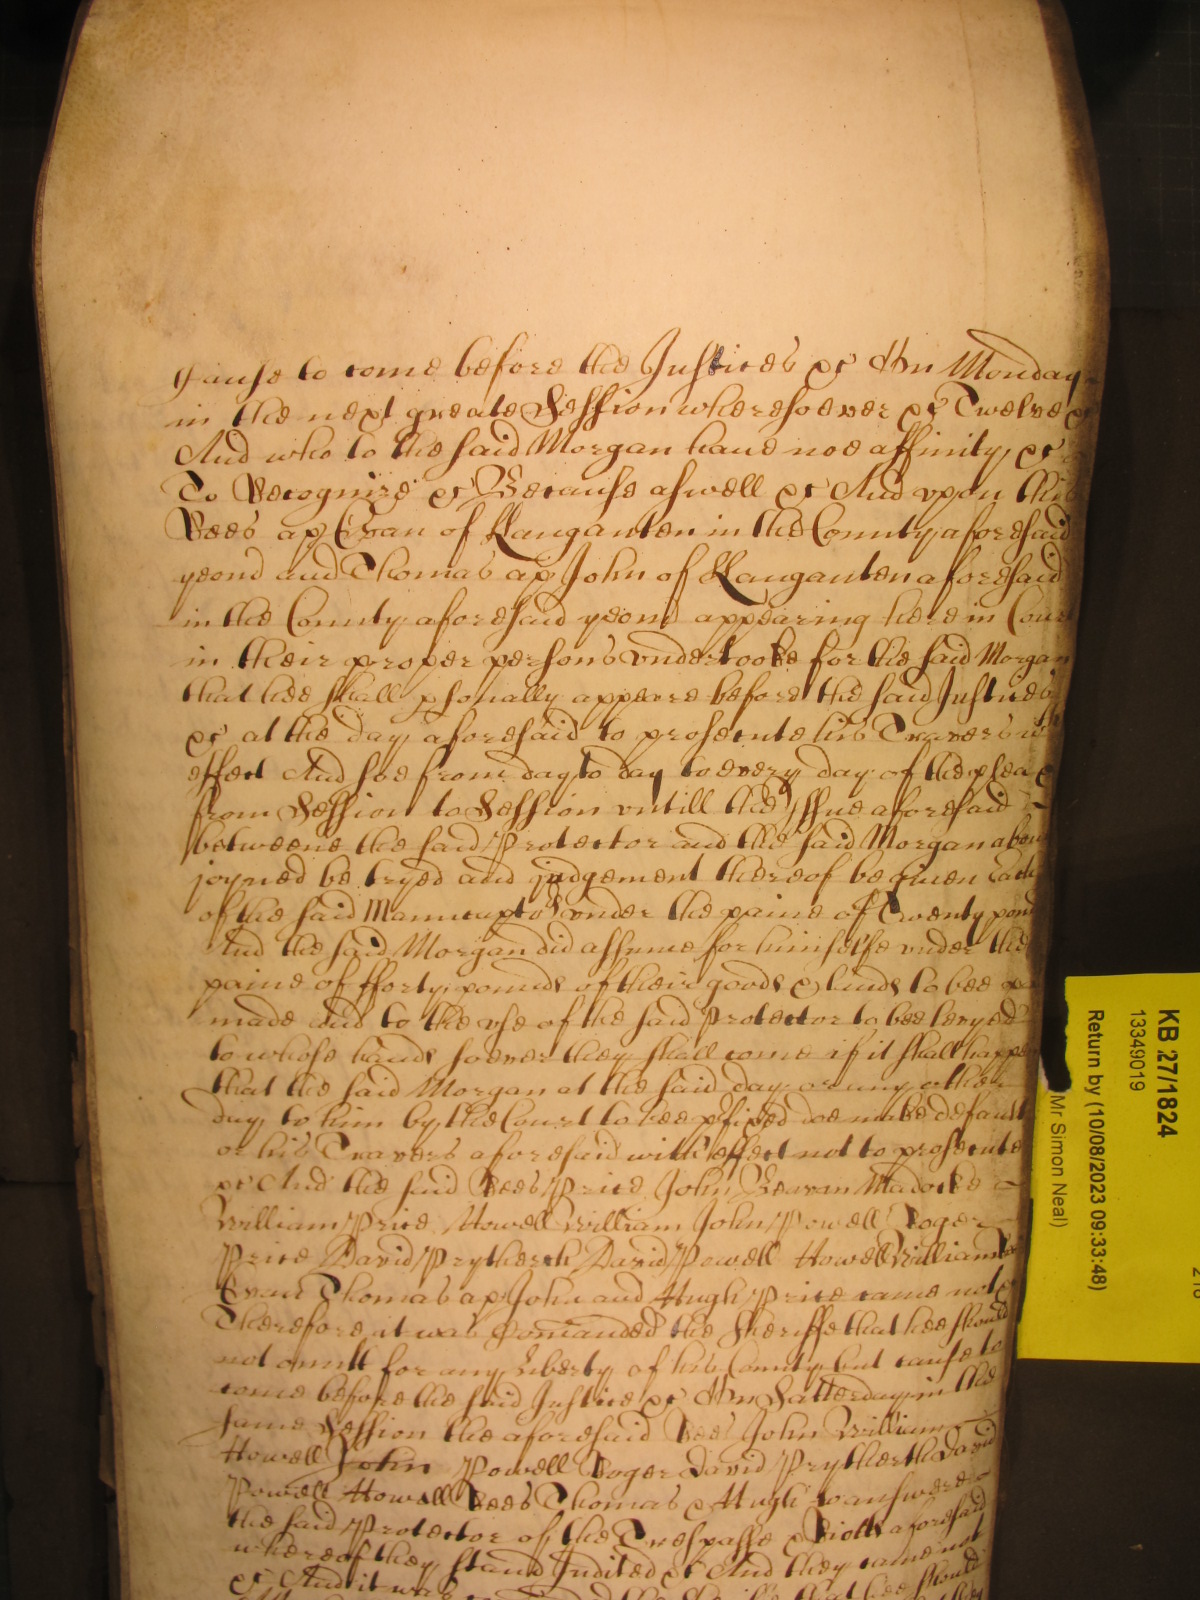 Cause to come before the Justices &c On Monday
in the next greate Session wheresoever &c Twelve &c
And who to the said Morgan have noe affinity &c
To Recognize &c Because aswell &c And vpon this
Rees ap Evan of Llanganten in the County aforesaid
yeom̃ and Thomas ap John of Llanganten aforesaid
in the County aforesaid yeom̃ appearing here in Court
in their proper persons vndertooke for the said Morgan
that hee shall psonally appeare before the said Justices
&c at the day aforesaid to prosecute his Travers with
effect And soe from day to day to every day of the plea &
from Session to Session vntill the Issue aforesaid
betweene the said Protector and the said Morgan above
joyned be tryed and judgement thereof be given Each
of the said Manucapto vnder the paine of Twenty pounds
And the said Morgan did assume for himselfe vnder the
paine of fforty pounds of their goods & lands to bee
made and to the vse of the said Protector to bee levyed
to whose hands soever they shall come if it shall happen
that the said Morgan at the said day or any other
day to him by the Court to bee pfixed doe make default
or his Travers aforesaid with effect not to prosecute
&c And the said Rees Price John Beavan Madocke
William Price Howell William John Powell Roger
Price David Prytherch David Powell Howell William
Evan Thomas ap John and Hugh Price came not &c
Therefore it was Comanded the Sheriffe that hee should
not omitt for any Liberty of his County but cause to
come before the said Justice &c On Satterday in the
same Session the aforesaid Rees John William
Howell John Powell Roger David Prytherch David
Powell Howell Rees Thomas & Hugh to answere
the said Protector of the Trespasse & Riotts aforesaid
whereof they stand Indited &c And they came not
&c And it was the Sheriffe that hee should